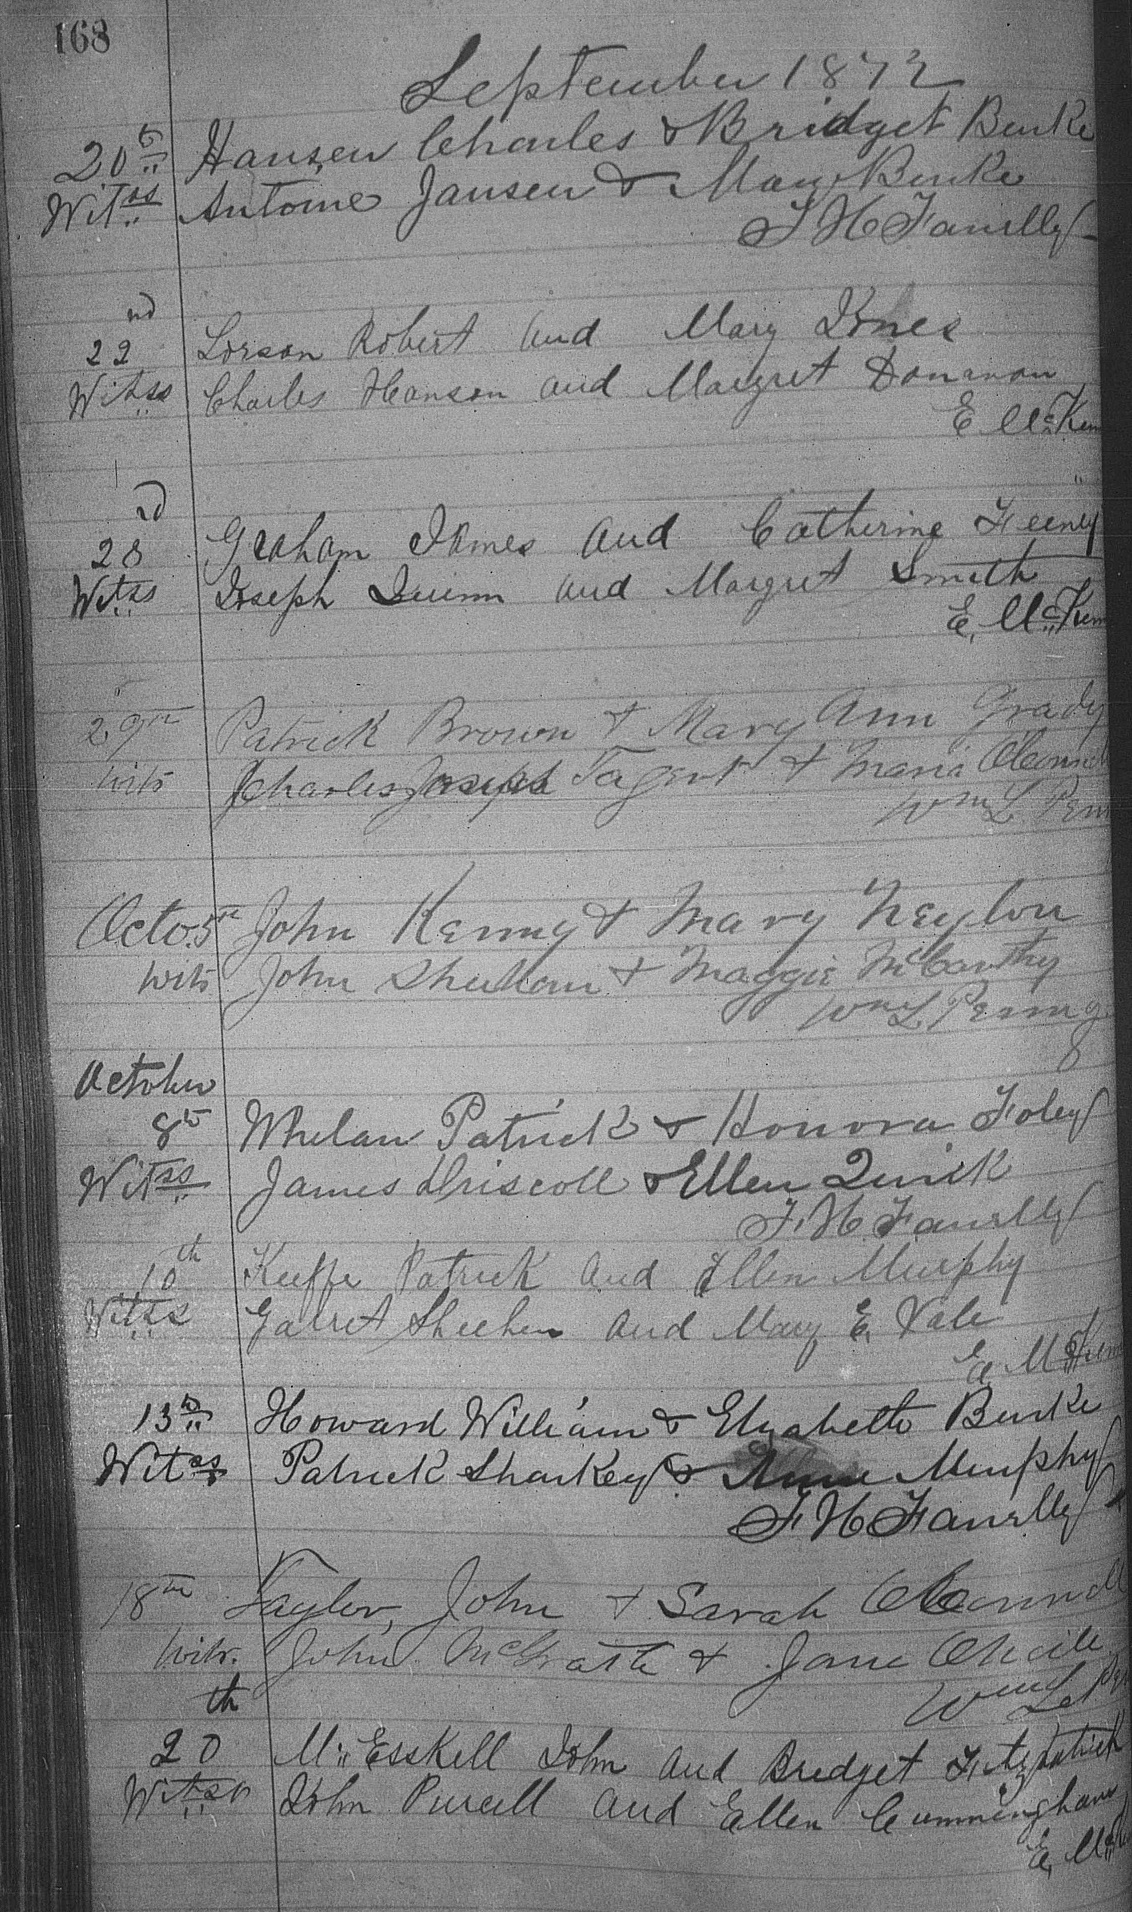 168
September 1872
20th Hansen Charles & Bridget Burke
Witss Antoine Jansen & Mary Burke
F H Farrelly
22nd Lorson Robert and Mary Jones
Witss Charles Hanson and Margret Donavan
E McKen
23rd Graham James and Catherine Feeney
Witss Joseph Quinn and Margret Smith
E, McKen
29th Patrick Brown & Mary Ann Grady
wits Charles Joseph Tagert & Maria OConnell
Wm L Penn
Octo. 5th John Kenny & Mary Neylon
wits John Sheehan & Maggie McCarthy
Wm L Penny
October
8th Whelan Patrick & Honora Foley
Witss James Driscoll & Ellen Quirk
F. H. Farrelly
10th Keeffe Patrick and Ellen Murphy
Witss Garret Sheehen and Mary E, Vale
E,
13th Howard William & Elizabeth Burke
Witss Patrick Sharkey & Anne Murphy
F H Farrelly
18th Taylor, John & Sarah OConnell
wits. John McGrath & Jane ONeill
Wm L Pen
20th Mc Esskell John and Bridget Fitzpatrick
Witss John Purcell and Ellen Cunningham
E, Mc